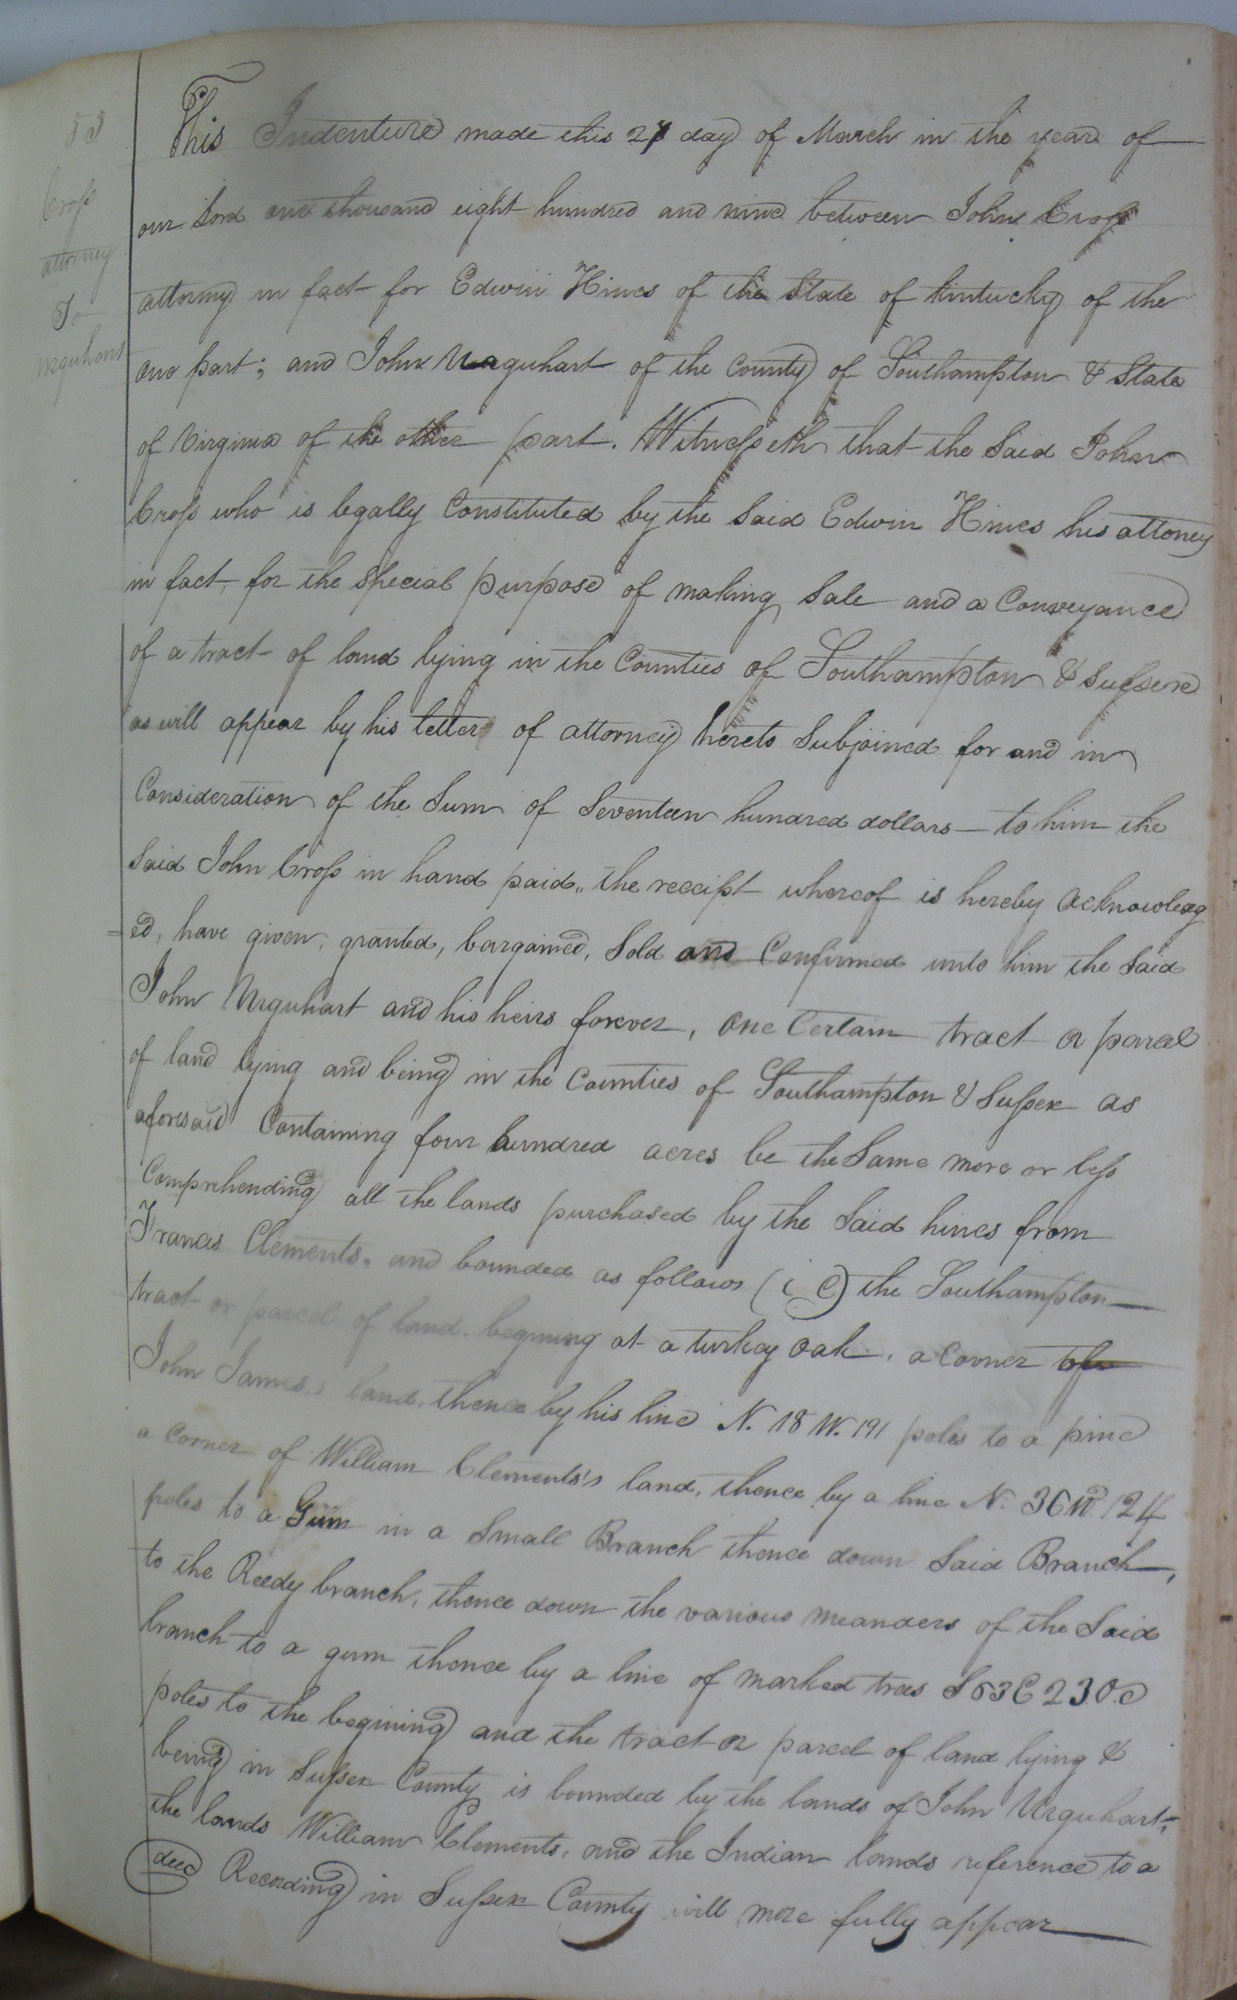 53
Cross
attorney
To
Urquhart
This Indenture made this 27 day of March in the year of
our Lord one thousand eight hundred and nine between John Cross
attorny in fact for Edwin Hines of the State of Kintucky of the
one part; and John Urquhart of the County of Southampton & State
of Virginia of the other part. Witnesseth that the Said John
Cross who is legally Constituted by the Said Edwin Hines his attoney
in fact, for the Special purpose of making Sale and a Conveyance
of a tract of land lying in the Counties of Southampton & Sussex
as will appear by his letter of attorney hereto Subjoined for and in
Consideration of the Sum of Seventeen hundred dollars to him the
Said John Cross in hand paid, the receipt whereof is hereby acknowledg
ed, have given, granted, bargained, Sold and Confirmed unto him the Said
John Urquhart and his heirs forever, One Certain tract or parcel
of land lying and being in the Counties of Southampton & Sussex as
aforesaid Containing four hundred acres be the Same more or less
Comprehending all the lands purchased by the Said hines from
Francis Clements. and bounded as follows (i e) the Southampton
tract or parcel of land. begining at a turkey Oak, a corner
John James's land, thence by his line N. 18 W. 191 poles to a pine
a corner of William Clements's land, thence by a line N. 36 W. 124
poles to a Gum in a Small Branch thence down Said Branch,
to the Reedy branch, thence down the various meanders of the Said
branch to a gum thence by a line of marked trees S 63 E 230
poles to the begining and the tract or parcel of land lying &
being in Sussex County is bounded by the lands of John Urquhart,
the lands William Clements, and the Indian lands reference to a
deed Recording in Sussex County will more fully appear